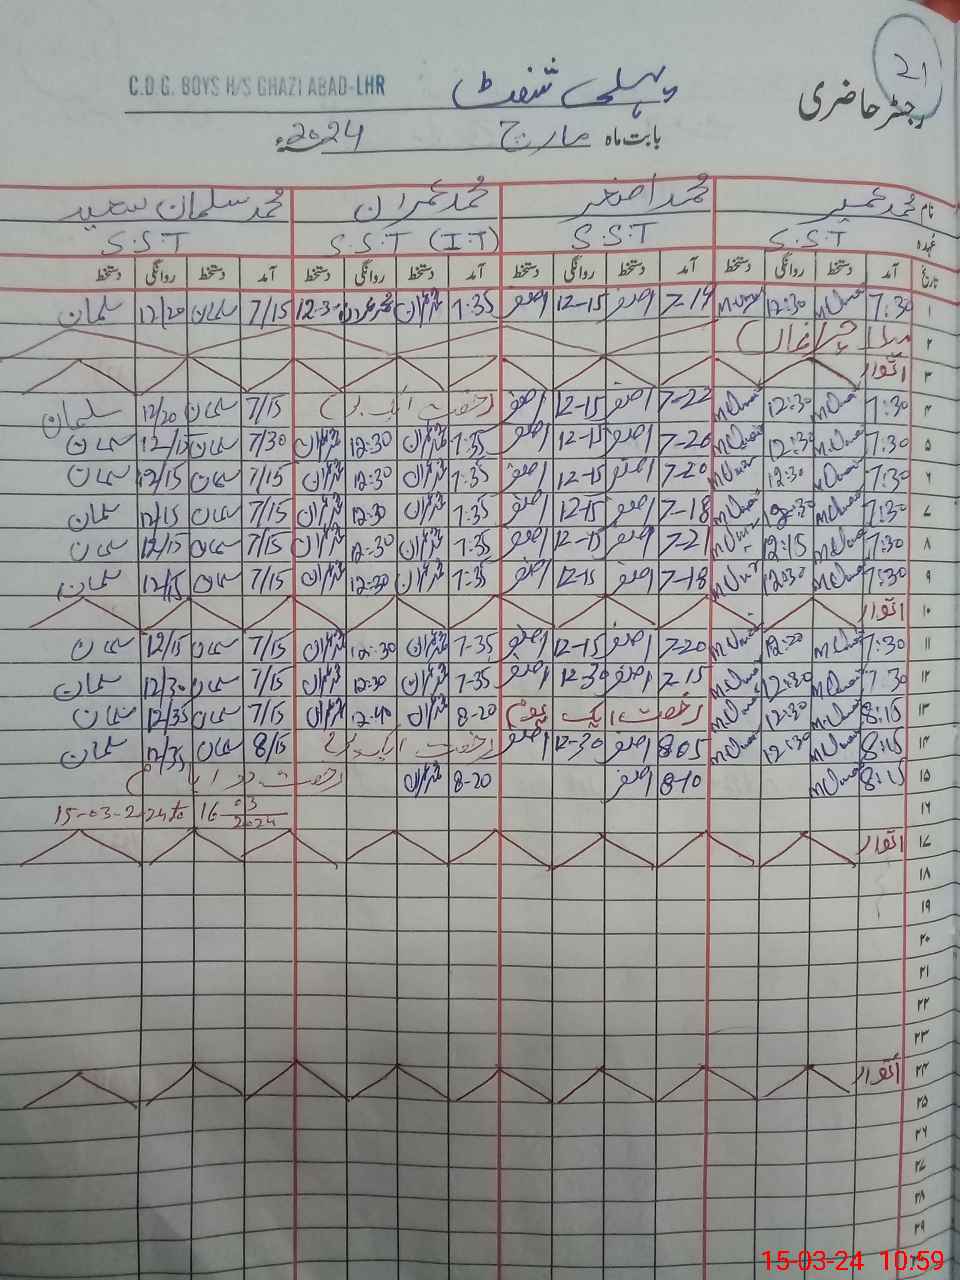 21
C.D.G. BOYS H/S GHAZI ABAD-LHR
پہلی شفٹ
رجٹر حاضری
بابت ماہ مارچ 2024ء
نام محمد عمیر محمد اصغر محمد عمران محمد سلمان سعید
عہدہ S.S.T S.S.T S.S.T (I.T) S.S.T
تاریخ آمد دستخط روانگی دستخط آمد دستخط روانگی دستخط آمد دستخط روانگی دستخط آمد دستخط روانگی دستخط
۱ 7:30 M Umair 12:30 M Umair 7-19 اصغر 12-15 اصغر 7:35 عمران 12:30 7/15 سلمان 12/20 سلمان
۲ میلہ چراغاں
۳ اتوار
۴ 7:30 M Umair 12:30 M Umair 7-22 اصغر 12-15 اصغر رخصت ایک یوم 7/15 سلمان 12/20 سلمان
۵ 7:30 M Umair 12:30 M Umair 7-20 اصغر 12-15 اصغر 7:35 عمران 12:30 عمران 7/30 سلمان 12/15 سلمان
۶ 7:30 M Umair 12:30 M Umair 7-20 اصغر 12-15 اصغر 7:35 عمران 12:30 عمران 7/15 سلمان 12/15 سلمان
۷ 7:30 M Umair 12:30 M Umair 7-18 اصغر 12-15 اصغر 7:35 عمران 12:30 عمران 7/15 سلمان 12/15 سلمان
۸ 7:30 M Umair 12:15 M Umair 7-21 اصغر 12-15 اصغر 7:35 عمران 12:30 عمران 7/15 سلمان 12/15 سلمان
۹ 7:30 M Umair 12:30 M Umair 7-18 اصغر 12-15 اصغر 7:35 عمران 12:30 عمران 7/15 سلمان 12/15 سلمان
۱۰ اتوار
۱۱ 7:30 M Umair 12:20 M Umair 7-20 اصغر 12-15 اصغر 7-35 عمران 12:30 عمران 7/15 سلمان 12/15 سلمان
۱۲ 7:30 M Umair 12:30 M Umair 7-15 اصغر 12-30 اصغر 7-35 عمران 12:30 عمران 7/15 سلمان 12/30 سلمان
۱۳ 8:15 M Umair 12:30 M Umair رخصت ایک یوم 8-20 عمران 12:40 عمران 7/15 سلمان 12/35 سلمان
۱۴ 8:15 M Umair 12:30 M Umair 8:05 اصغر 12-30 اصغر رخصت ایک یوم 8/15 سلمان 12/35 سلمان
۱۵ 8:15 M Umair 8-10 اصغر 8-20 عمران رخصت دو ایام
۱۶ 15-03-2024 to 16-03-2024
۱۷ اتوار
۱۸
۱۹
۲۰
۲۱
۲۲
۲۳
۲۴ اتوار
۲۵
۲۶
۲۷
۲۸
۲۹
15-03-24 10:59